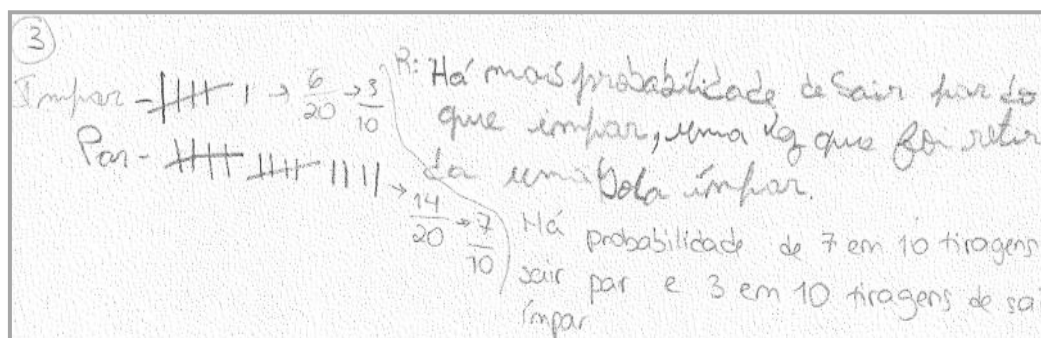 3
Ímpar - 卌 | → 6/20 → 3/10
Par - 卌 卌 |||| → 14/20 → 7/10
R: Há mais probabilidade de sair par do
que ímpar, uma vez que foi retir
da uma bola ímpar.
Há probabilidade de 7 em 10 tiragens
sair par e 3 em 10 tiragens de sai
ímpar